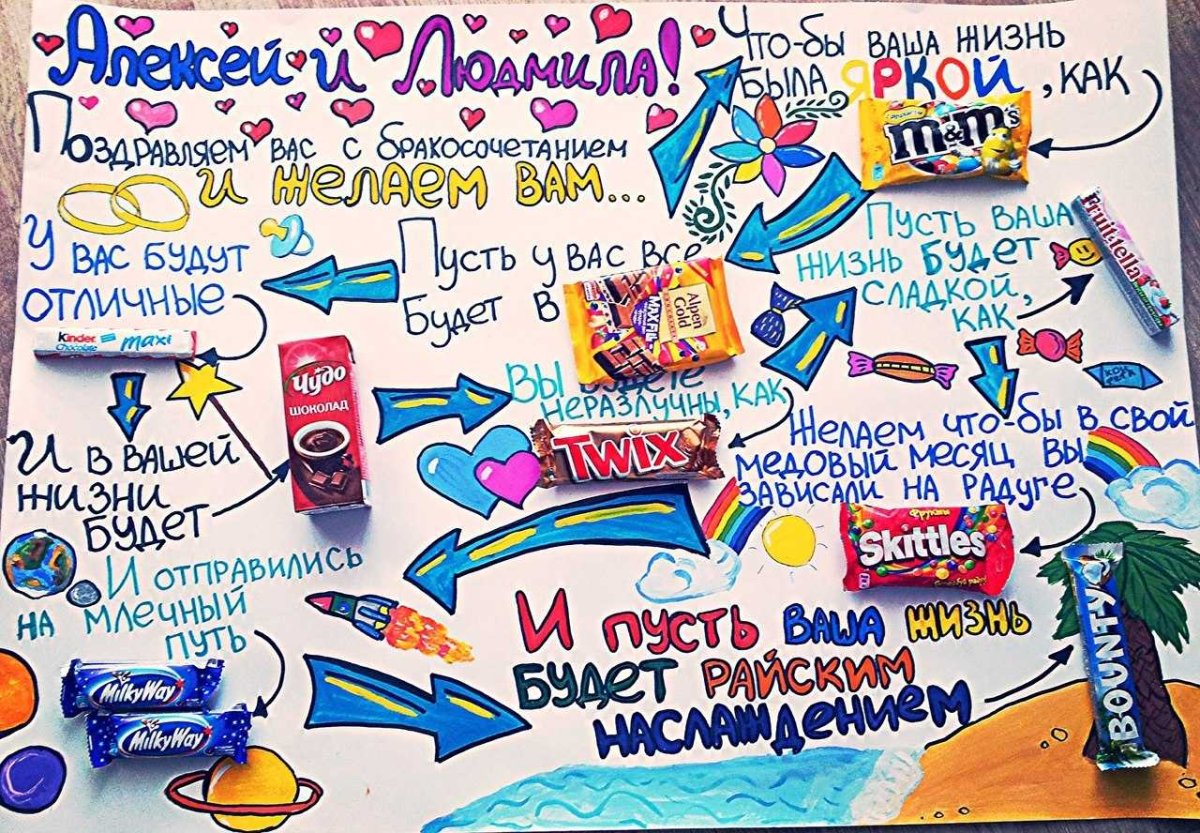 Алексей и Людмила!
Поздравляем вас с бракосочетанием
и желаем вам...
Что-бы ваша жизнь
была яркой, как
m&m's
Пусть ваша
жизнь будет
сладкой,
как
Fruit-tella
Пусть у вас все
будет в
Alpen
Gold
MAXFUN
У вас будут
отличные
kinder
Chocolate
maxi
И в вашей
жизни
будет
Чудо
ШОКОЛАД
Вы будете
неразлучны, как
TWIX
Желаем что-бы в свой
медовый месяц вы
зависали на радуге
Фрукты
Skittles
И отправились
на млечный
путь
MilkyWay
MilkyWay
И пусть ваша жизнь
будет райским
наслаждением
BOUNTY